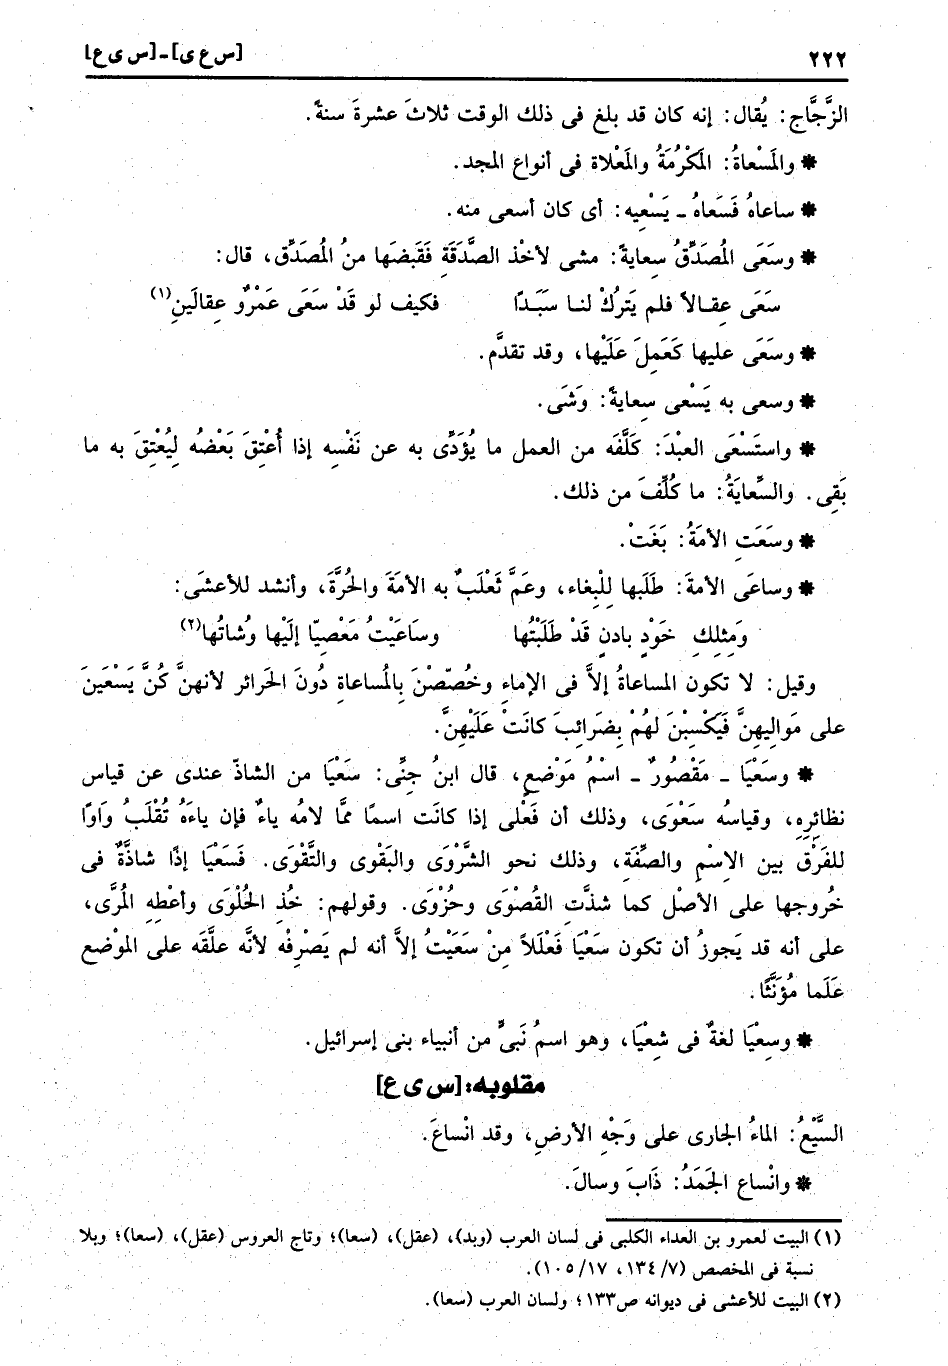 ٢٢٢ [س ع ى] - [س ى ع]
الزَّجَّاج: يُقال: إنه كان قد بلغ فى ذلك الوقت ثلاثَ عشرةَ سنةً.
* والمَسْعاةُ: المَكْرُمَةُ والمَعْلاة فى أنواع المجد.
* ساعاهُ فَسَعاهُ ـ يَسْعِيه: أى كان أسعى منه.
* وسَعَى المُصَدِّقُ سِعايةً: مشى لأخْذ الصَّدَقَةِ فَقَبضَها منُ المُصَدِّق، قال:
سَعَى عِقـالاً فلم يَترُكْ لنـا سَبَـدًا فكيف لو قَدْ سَعَى عَمْرٌو عِقالَينِ(١)
* وسَعَى عليها كَعَمِلَ عَلَيْها، وقد تقدَّم.
* وسعى به يَسْعى سِعايةً: وَشَى.
* واستَسْعَى العبْدَ: كَلَّفَه من العمل ما يُؤَدِّى به عن نَفْسِه إذا أُعْتِقَ بَعْضُه لِيُعْتِقَ به ما
بَقِى. والسِّعايَةُ: ما كُلِّفَ من ذلك.
* وسَعَتِ الأمَةُ: بَغَتْ.
* وساعَى الأمةَ: طَلَبها لِلْبِغاء، وعَمَّ ثَعْلَبٌ به الأمَةَ والحُرَّةَ، وأنشد للأعشَى:
وَمِثلِكِ خَوْدٍ بادنٍ قَدْ طَلَبْتُها وسَاعَيْتُ مَعْصِيّا إلَيْها وُشاتُها(٢)
وقيل: لا تكون المساعاةُ إلاَّ فى الإماءِ وخُصّصْنَ بِالمُساعاةِ دُونَ الحَرائر لأنهنَّ كُنَّ يَسْعَينَ
على مَوالِيهِنَّ فَيَكْسِبْنَ لهُمْ بِضَرائِبَ كانَتْ عَلَيْهِنَّ.
* وسَعْيَا ـ مَقْصُورٌ ـ اسْمُ مَوْضعٍ، قال ابنُ جِنِّى: سَعْيَا من الشاذّ عندى عن قياس
نظائِرِه، وقياسُه سَعْوَى، وذلك أن فَعْلى إذا كانَت اسمًا ممَّا لامُه ياءٌ فإن ياءَهُ تُقْلَبُ وَاوًا
للفَرْق بين الاِسْمِ والصِّفَةِ، وذلك نحو الشَّرْوَى والبَقْوى والتَّقْوَى. فَسَعْيَا إذًا شاذَّةٌ فى
خُروجها على الأصْل كما شذَّتِ القُصْوَى وحُزْوَى. وقولهم: خُذِ الحُلْوَى وأعْطِهِ المُرَّى،
على أنه قد يَجوزُ أن تكون سَعْيَا فَعْلَلاً مِنْ سَعَيْتُ إلاَّ أنه لم يَصْرِفْه لأنَّه علَّقَه على الموْضع
عَلَما مُؤَنَّثًا.
* وسِعْيَا لغةٌ فى شعْيَا، وهو اسمُ نَبىٍّ من أنبياء بنى إسرائيل.
مقلوبه: [س ى ع]
السَّيْعُ: الماءُ الجارى على وَجْهِ الأرضِ، وقد انْساعَ.
* وانْساع الجَمَدُ: ذَابَ وسالَ.
(١) البيت لعمرو بن العداء الكلبى فى لسان العرب (وبد)، (عقل)، (سعا)؛ وتاج العروس (عقل)، (سعا)؛ وبلا
نسبة فى المخصص (٧/ ١٣٤، ١٧/ ١٠٥).
(٢) البيت للأعشى فى ديوانه ص١٣٣؛ ولسان العرب (سعا).